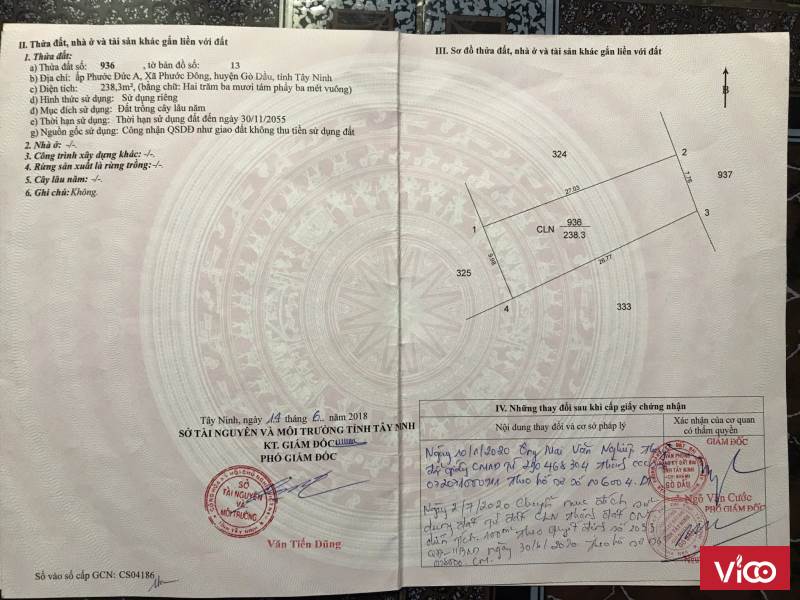 II. Thửa đất, nhà ở và tài sản khác gắn liền với đất
1. Thửa đất:
a) Thửa đất số: 936 , tờ bản đồ số: 13
b) Địa chỉ: ấp Phước Đức A, Xã Phước Đông, huyện Gò Dầu, tỉnh Tây Ninh
c) Diện tích: 238,3m², (bằng chữ: Hai trăm ba mươi tám phẩy ba mét vuông)
d) Hình thức sử dụng: Sử dụng riêng
đ) Mục đích sử dụng: Đất trồng cây lâu năm
e) Thời hạn sử dụng: Thời hạn sử dụng đất đến ngày 30/11/2055
g) Nguồn gốc sử dụng: Công nhận QSDĐ như giao đất không thu tiền sử dụng đất
2. Nhà ở: -/-
3. Công trình xây dựng khác: -/-
4. Rừng sản xuất là rừng trồng:-/-
5. Cây lâu năm: -/-
6. Ghi chú: Không.
Tây Ninh, ngày 14 tháng 6 năm 2018
SỞ TÀI NGUYÊN VÀ MÔI TRƯỜNG TỈNH TÂY NINH
KT. GIÁM ĐỐC
PHÓ GIÁM ĐỐC
SỞ
TÀI NGUYÊN
VÀ
MÔI TRƯỜNG
Văn Tiến Dũng
Số vào sổ cấp GCN: CS04186
III. Sơ đồ thửa đất, nhà ở và tài sản khác gắn liền với đất
B
324
2
27.03
7.76
937
1
CLN 936
238.3
3
9.98
26.77
325
4
333
IV. Những thay đổi sau khi cấp giấy chứng nhận
Nội dung thay đổi và cơ sở pháp lý
Xác nhận của cơ quan có thẩm quyền
Ngày Ông Mai Văn Nghiệp
GIÁM ĐỐC
GÒ DẦU
Ngô Văn Cước
PHÓ GIÁM ĐỐC
Ngày 2/7/2020 Chuyển mục đích sử
dụng đất từ đất CLN thành đất ONT
diện tích 100m² theo quyết định số
ngày 30/6/2020 theo hồ sơ số
CM.
ViCO